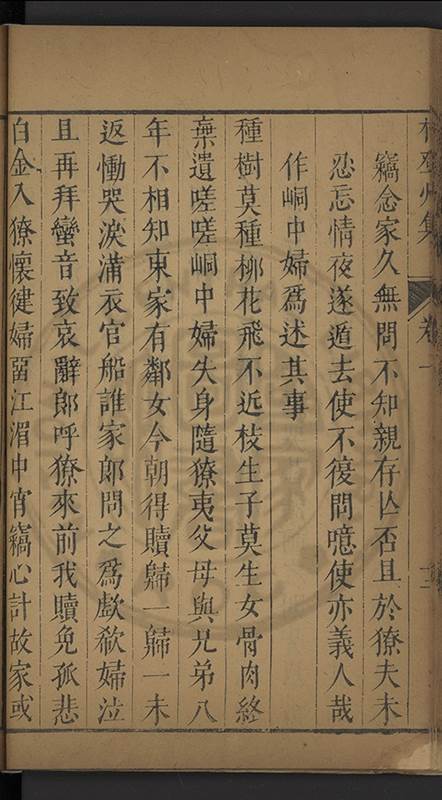 集 卷一
竊念家久無問不知親存亾否且於獠夫未
忍忘情夜遂遁去使不復問噫使亦義人哉
作峒中婦爲述其事
種樹莫種柳花飛不近枝生子莫生女骨肉終
棄遺嗟嗟峒中婦失身隨獠夷父母與兄弟八
年不相知東家有鄰女今朝得贖歸一歸一未
返慟哭淚滿衣官船誰家郎問之爲歔欷婦泣
且再拜蠻音致哀辭郎呼獠來前我贖免孤悲
白金入獠懷徤婦留江湄中宵竊心計故家或